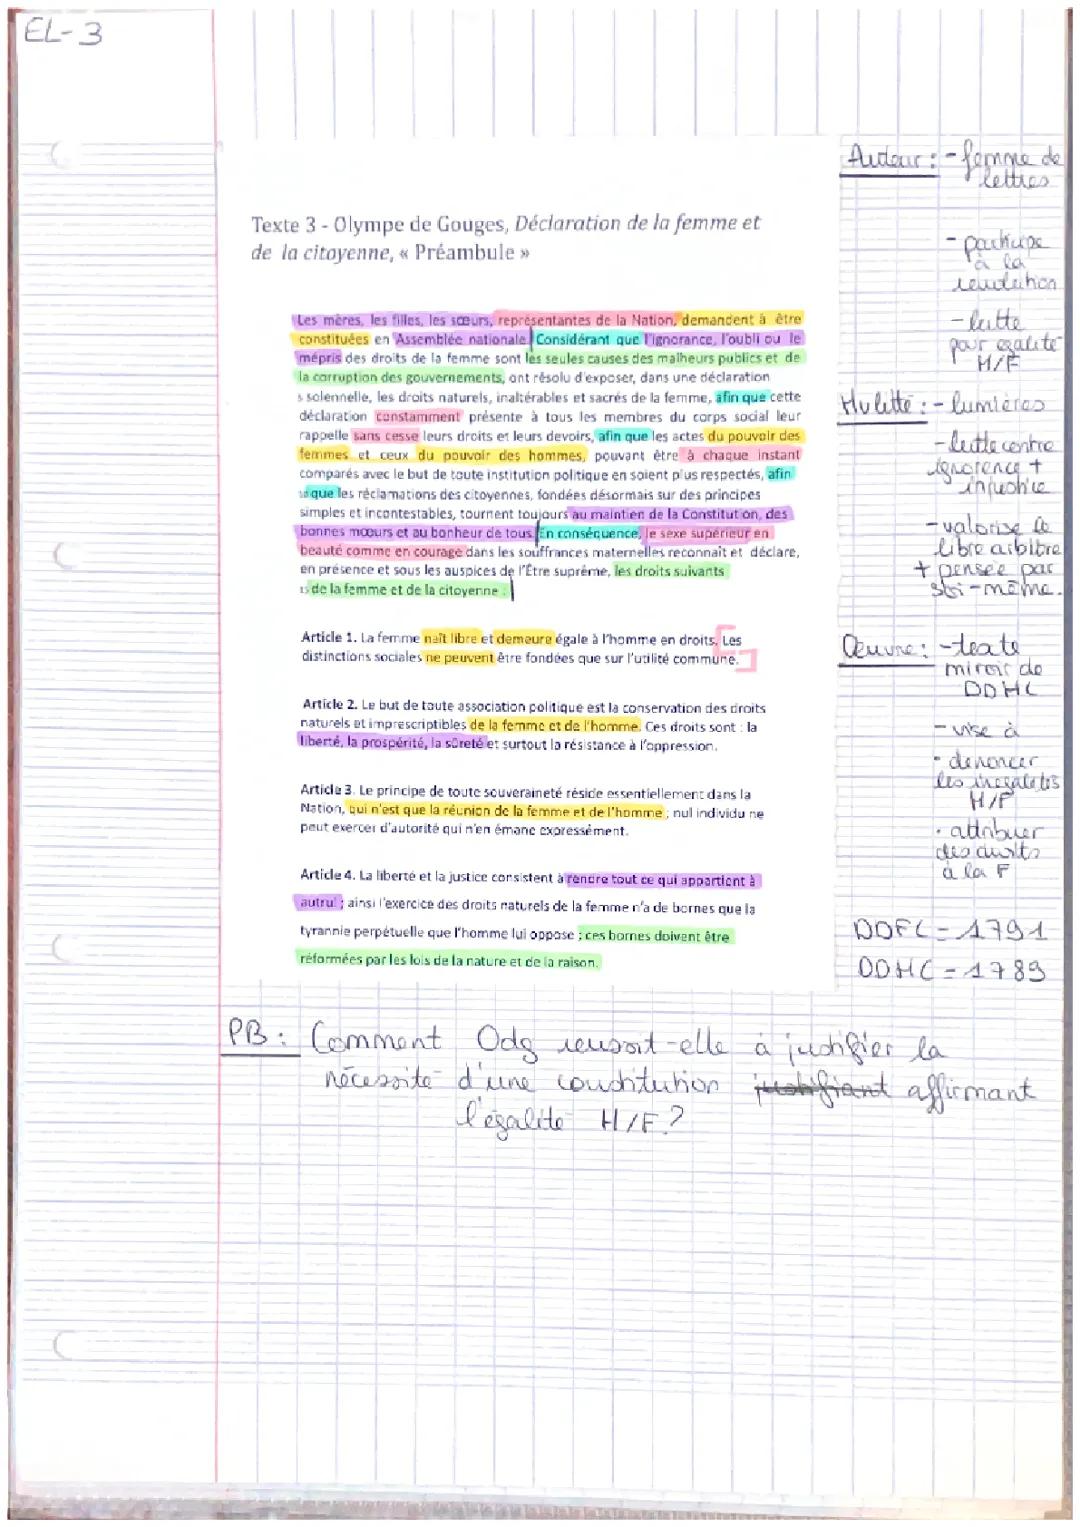 EL-3
Texte 3 - Olympe de Gouges, Déclaration de la femme et
de la citoyenne, « Préambule »
Les mères, les filles, les sœurs, représentantes de la Nation, demandent à être
constituées en Assemblée nationale. Considérant que l'ignorance, l'oubli ou le
mépris des droits de la femme sont les seules causes des malheurs publics et de
la corruption des gouvernements, ont résolu d'exposer, dans une déclaration
5 solennelle, les droits naturels, inaltérables et sacrés de la femme, afin que cette
déclaration constamment présente à tous les membres du corps social leur
rappelle sans cesse leurs droits et leurs devoirs, afin que les actes du pouvoir des
femmes et ceux du pouvoir des hommes, pouvant être à chaque instant
comparés avec le but de toute institution politique en soient plus respectés, afin
10 que les réclamations des citoyennes, fondées désormais sur des principes
simples et incontestables, tournent toujours au maintien de la Constitution, des
bonnes mœurs et au bonheur de tous. En conséquence, le sexe supérieur en
beauté comme en courage dans les souffrances maternelles reconnaît et déclare,
en présence et sous les auspices de l'Être suprême, les droits suivants
15 de la femme et de la citoyenne :
Article 1. La femme naît libre et demeure égale à l'homme en droits. Les
distinctions sociales ne peuvent être fondées que sur l'utilité commune.
Article 2. Le but de toute association politique est la conservation des droits
naturels et imprescriptibles de la femme et de l'homme. Ces droits sont : la
liberté, la prospérité, la sûreté et surtout la résistance à l'oppression.
Article 3. Le principe de toute souveraineté réside essentiellement dans la
Nation, qui n'est que la réunion de la femme et de l'homme ; nul individu ne
peut exercer d'autorité qui n'en émane expressément.
Article 4. La liberté et la justice consistent à rendre tout ce qui appartient à
autrui ; ainsi l'exercice des droits naturels de la femme n'a de bornes que la
tyrannie perpétuelle que l'homme lui oppose ; ces bornes doivent être
réformées par les lois de la nature et de la raison.
Auteur : - femme de
lettres
- participe
à la
révolution
- lutte
pour égalité
H/F
Mvlitté : - lumières
- lutte contre
ignorence +
injustice
- valorise le
libre arbitre
+ pensée par
soi-même.
Œuvre : - texte
miroir de
DDHC
- vise à
· dénoncer
les inégalités
H/F
· attribuer
des droits
à la F
DDFC = 1791
DDHC = 1789
PB : Comment Odg reussit-elle à justifier la
nécessité d'une constitution justifiant affirmant
l'égalité H/F ?